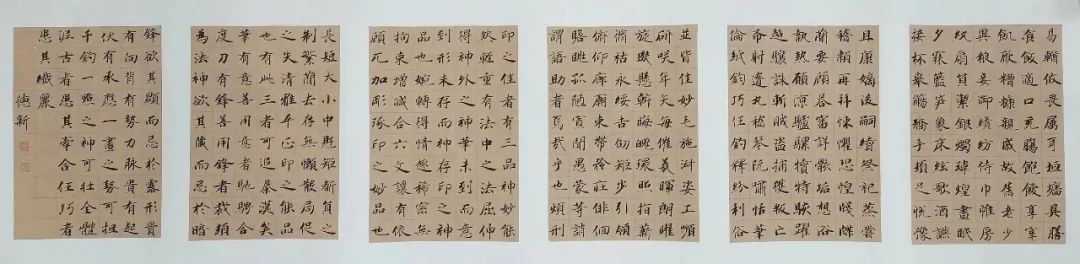 易輶攸畏属耳垣墙具膳
飡飯適口充膓飽飫享宰
飢厭糟糠親戚故舊老少
異糧妾御績紡侍巾帷房
紈扇員潔銀燭煒煌晝眠
夕寐藍笋象床弦歌酒讌
接杯舉觴矯手頓足悦豫
且康嫡後嗣續祭祀蒸嘗
稽顙再拜悚懼恐惶牋牒
簡要顧答審詳骸垢想浴
執熱願涼驢騾犢特駭躍
超驤誅斬賊盗捕獲叛亡
布射遼丸嵇琴阮嘯恬筆
倫紙鈞巧任釣釋紛利俗
並皆佳妙毛施淑姿工嚬
妍咲年矢每催羲暉朗曜
旋璣懸斡晦魄環照指薪
脩祜永綏吉劭矩步引領
俯仰廊廟束帶矜莊徘徊
瞻眺孤陋寡聞愚蒙等誚
謂語助者焉哉乎也煩刑
印之佳者有三品神妙能
然輕重有法中之法屈伸
得神外之神筆未到而意
到形未存而神存印之神
品也婉轉得情趣稀密無
拘束增減合六文譲有依
顧不加彫琢印之妙品也
長短大小中規矩方員之
制繁蕳去存無懶散局促
之失清雅平正印之能品
也有此三者可追秦漢矣
筆有意善用意者馳聘合
度刀有鋒善用鋒者裁頓
為法神欲其藏而忌於暗
鋒欲其顯而忌於露形貴
有向背有勢力脉貴有起
伏有承應一畫之勢可担
千鈞一點之神可壯全體
泥古者患其牽合任巧者
患其孅麗
德新